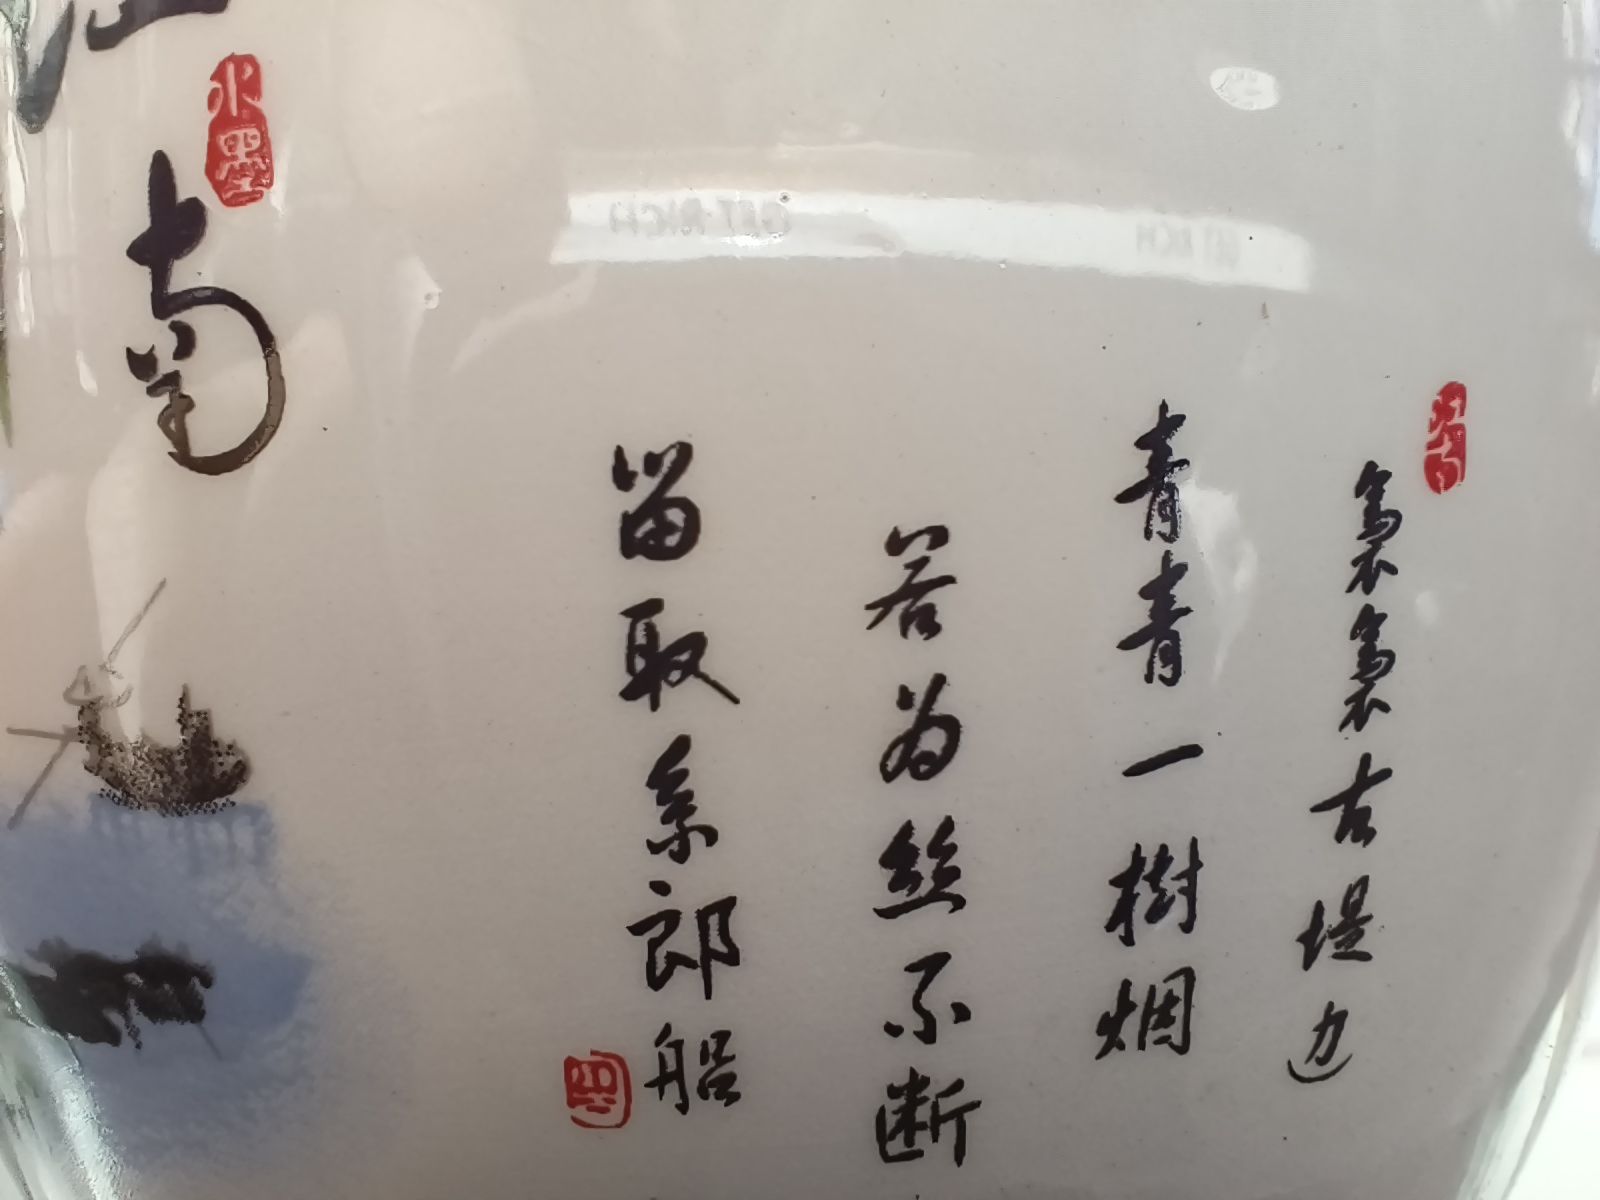 袅袅古堤边
青青一樹烟
若为丝不断
留取系郎船
南
水墨
GET RICH